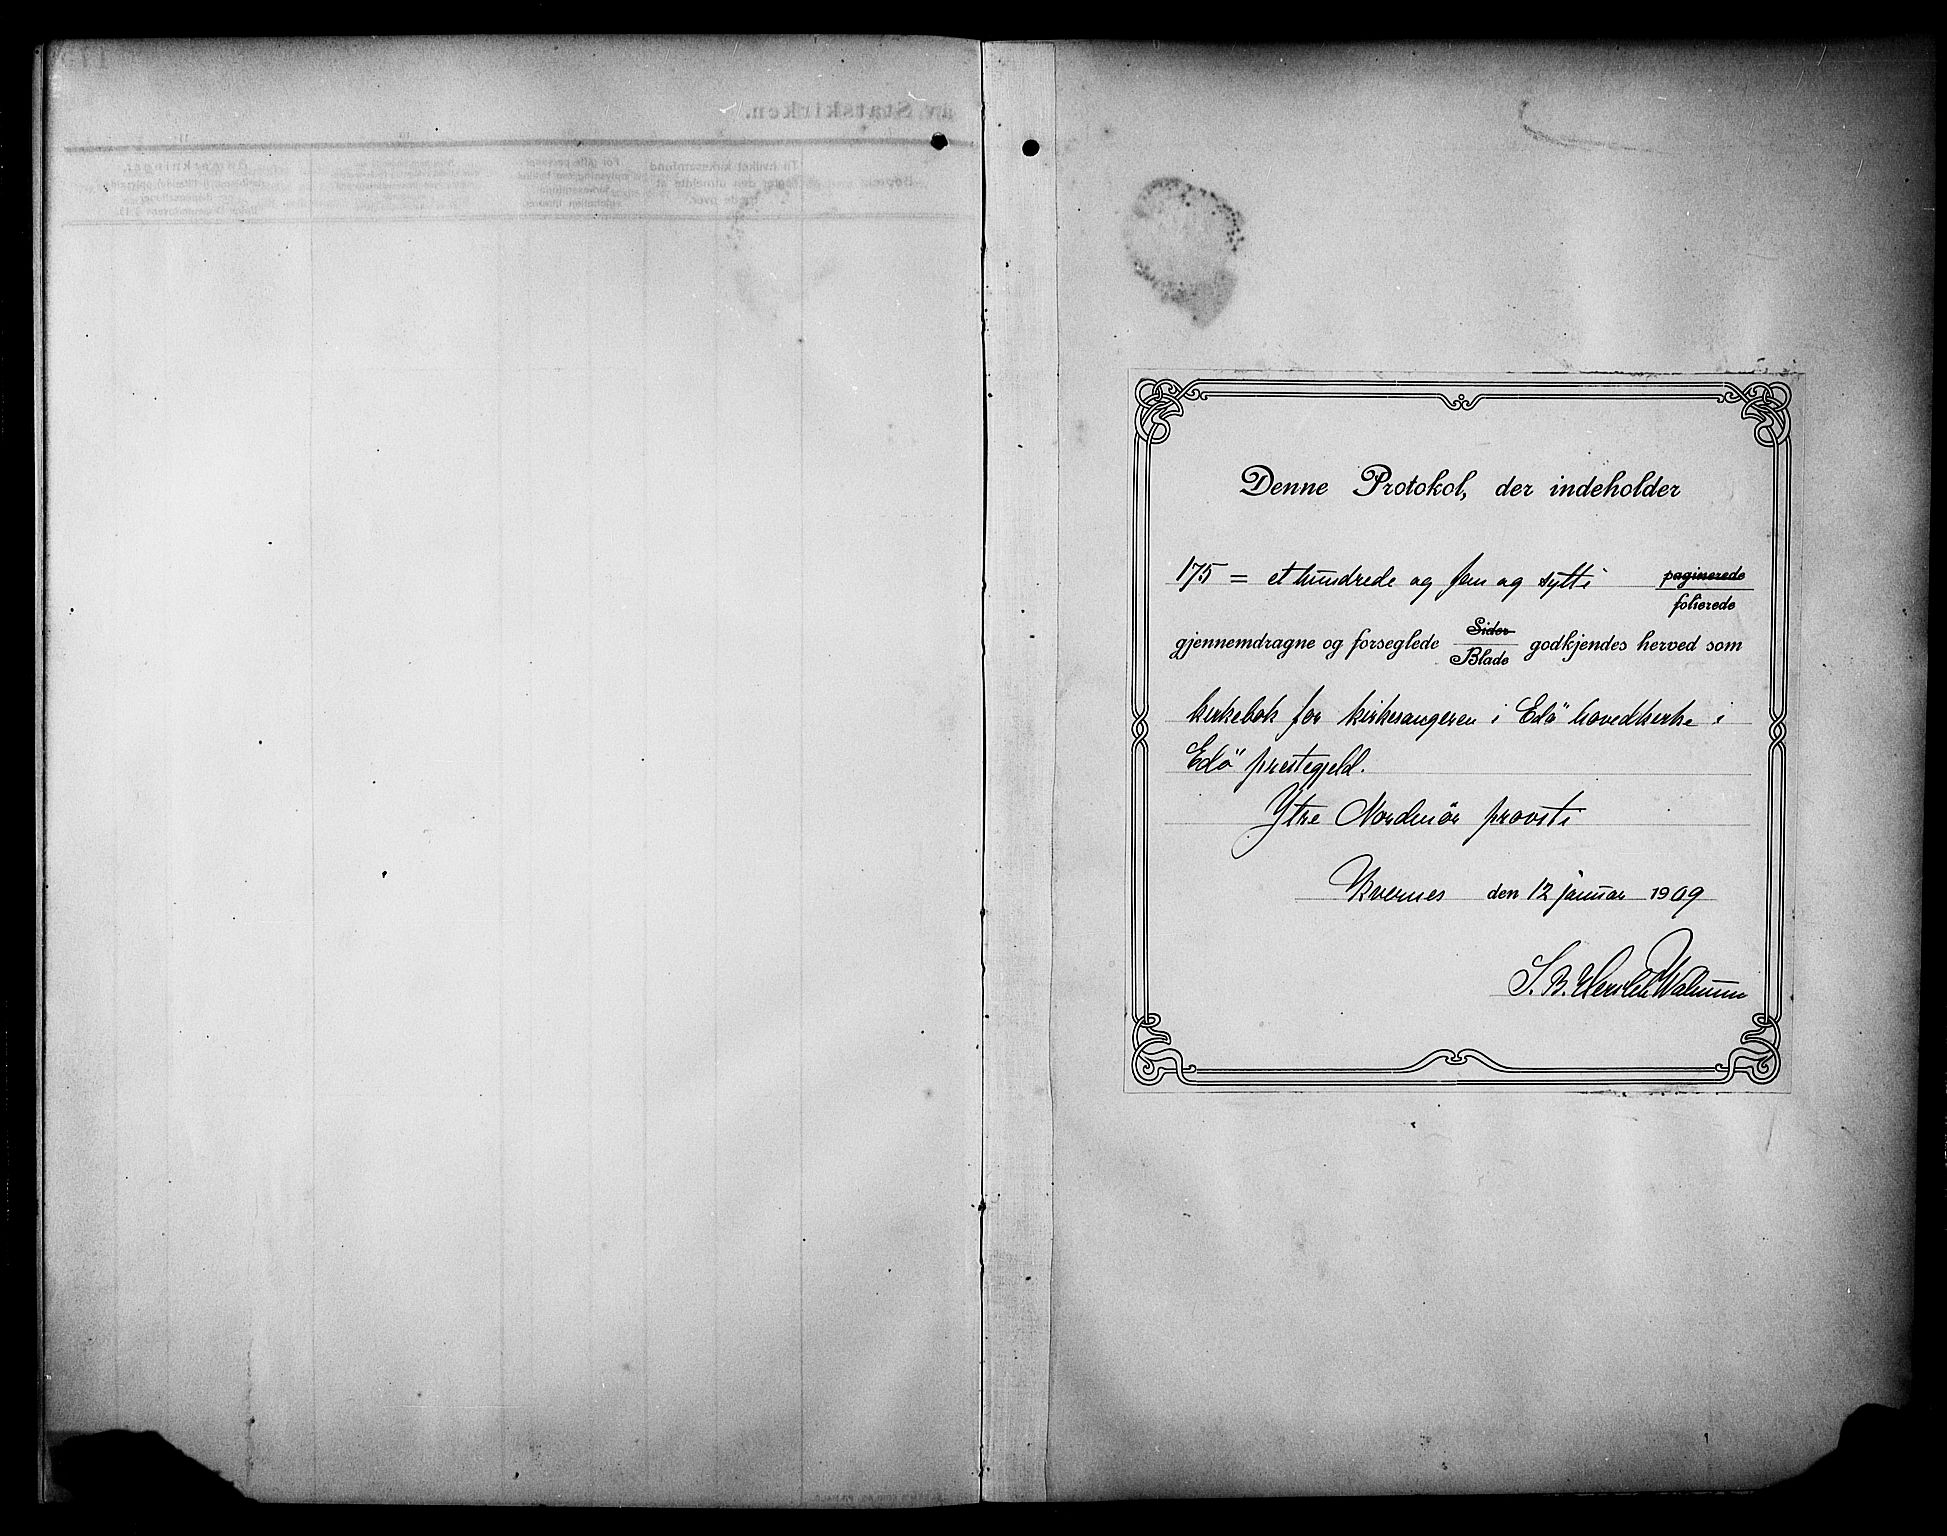 av Statskirken.
Til hvilket kirkesamfund den utmeldte er traadt over.
Denne Protokol, der indeholder
175 = et hundrede og fem og sytti paginerede
folierede
gjennemdragne og forseglede Sider godkjendes herved som
Blade
kirkebok for kirkesangeren i Edö hovedkirke i
Edö prestegjeld.
Ytre Nordmör provsti
Kvernes den 12 januar 1909
S. B. Hersleb Walnum